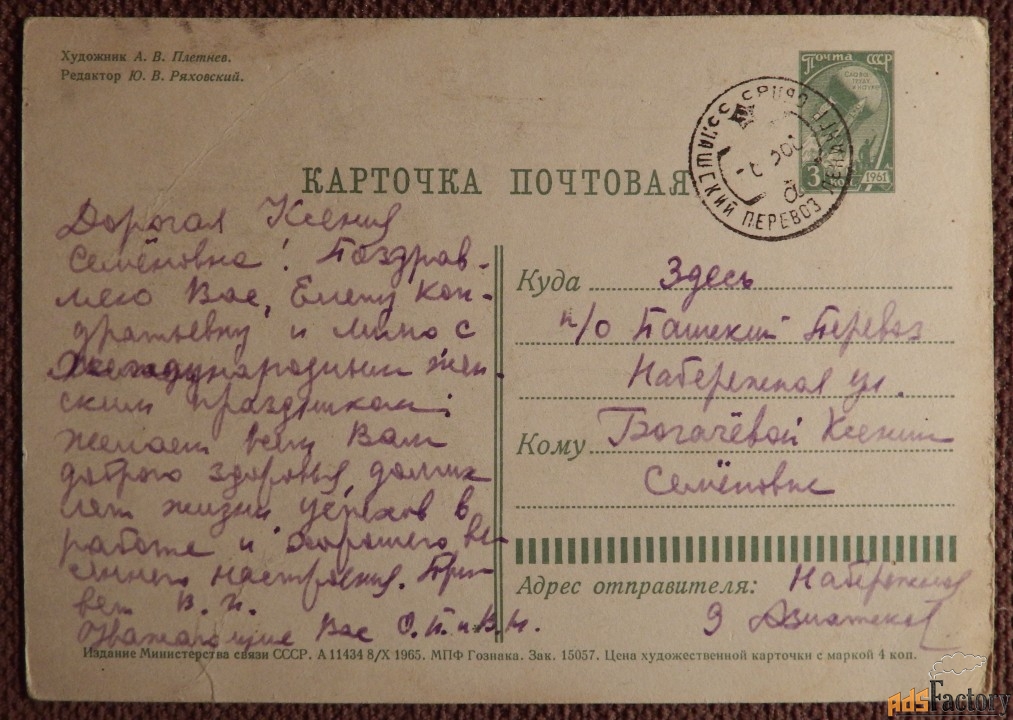 Художник А. В. Плетнев.
Редактор Ю. В. Ряховский.
Почта СССР
3
1961
ПАШСКИЙ ПЕРЕВОЗ
КАРТОЧКА ПОЧТОВАЯ
Дорогая Ксения
Семёновна! Поздрав-
ляю Вас, Елену Кон-
дратьевну и
Международным жен-
ским праздником
желаем всем Вам
доброго здоровья, долгих
лет жизни, успехов в
работе и хорошего ве
сеннего настроения. При
вет В. И.
Уважающие Вас О.П. и В.И.
Куда Здесь
п/о Пашский Перевоз
Набережная ул.
Кому Богачёвой Ксении
Семёновне
Адрес отправителя: Набережная
9
Издание Министерства связи СССР. А 11434 8/X 1965. МПФ Гознака. Зак. 15057. Цена художественной карточки с маркой 4 коп.
AdsFactory